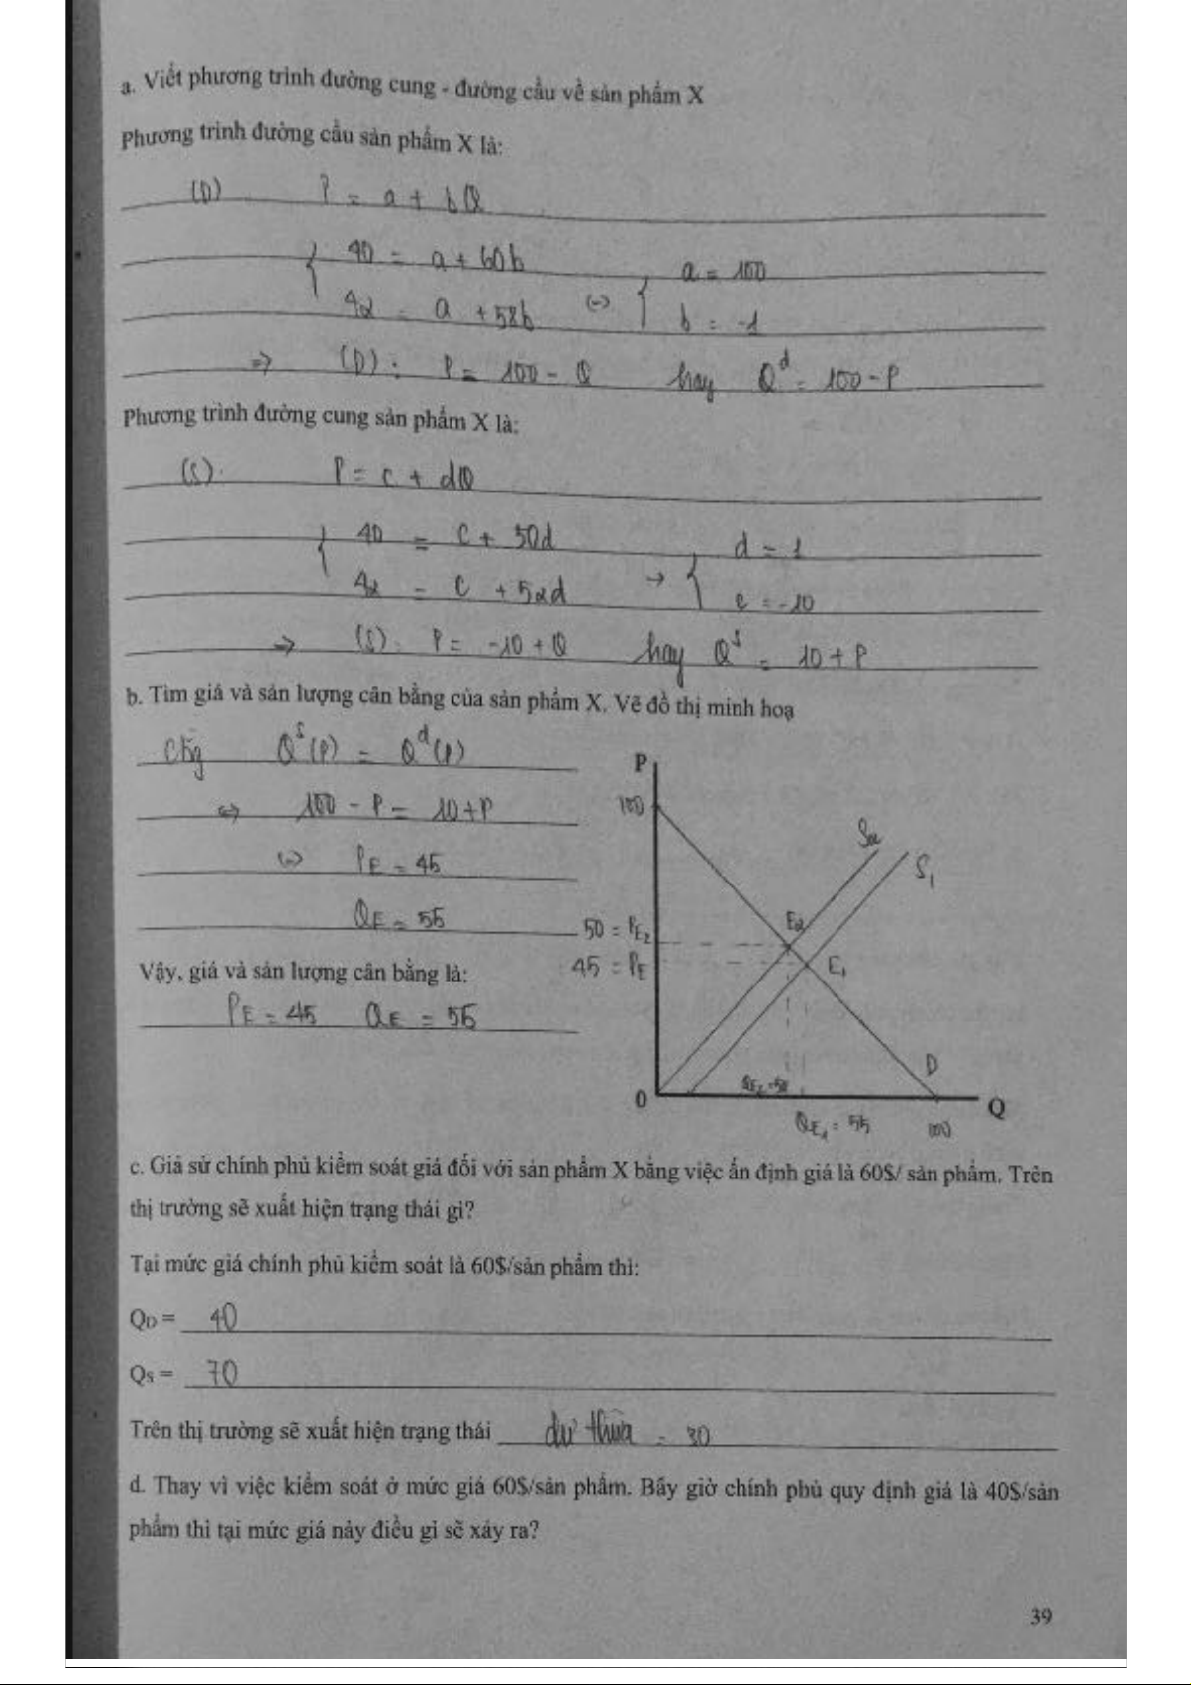 a. Viết phương trình đường cung - đường cầu về sản phẩm X
Phương trình đường cầu sản phẩm X là:
(D) P = a + bQ
40 = a + 60b
a = 100
42 = a + 58b (=)
b = -1
=> (D): P = 100 - Q hay Q^d = 100 - P
Phương trình đường cung sản phẩm X là:
(S). P = c + dQ
40 = c + 50d
d = 1
42 = c + 52d →
c = -10
=> (S). P = -10 + Q hay Q^s = 10 + P
b. Tìm giá và sản lượng cân bằng của sản phẩm X. Vẽ đồ thị minh hoạ
Q^s(P) = Q^d(P)
<=> 100 - P = 10 + P
(=) P_E = 45
Q_E = 55
Vậy, giá và sản lượng cân bằng là:
P_E = 45 Q_E = 55
P
100
S2
S1
50 = P_E2
E2
45 = P_E
E1
D
0
Q_E2 = 50
Q
Q_E1 = 55
100
c. Giả sử chính phủ kiểm soát giá đối với sản phẩm X bằng việc ấn định giá là 60$/ sản phẩm. Trên
thị trường sẽ xuất hiện trạng thái gì?
Tại mức giá chính phủ kiểm soát là 60$/sản phẩm thì:
QD = 40
QS = 70
Trên thị trường sẽ xuất hiện trạng thái dư thừa = 30
d. Thay vì việc kiểm soát ở mức giá 60$/sản phẩm. Bây giờ chính phủ quy định giá là 40$/sản
phẩm thì tại mức giá này điều gì sẽ xảy ra?
39